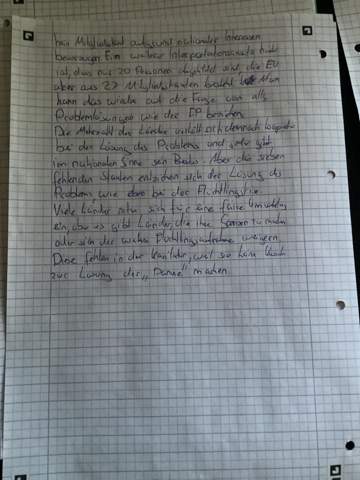 kein Mitgliedstaat aufgrund nationaler Interessen
bevorzugen. Ein weiterer Interpretationsansatz
ist, dass nur 20 Personen abgebildet sind, die EU
aber aus 27 Mitgliedstaaten besteht. Man
kann das wieder auf die Frage von
Problemlösungen wie der EP beziehen.
Die Mehrzahl der Länder verhält sich demnach kooperativ
bei der Lösung des Problems und
im nationalen Sinne sein Bestes. Aber die sieben
fehlenden Staaten entziehen sich der Lösung des
Problems, wie eben bei der Flüchtlingskrise.
Viele Länder setzen sich für eine faire
ein, aber es gibt Länder, die ihre Grenzen zu machen
oder sich der weiteren Flüchtlingsaufnahme weigern.
Diese fehlen in der Karikatur, weil sie keine
zur Lösung der „Panne" machen.